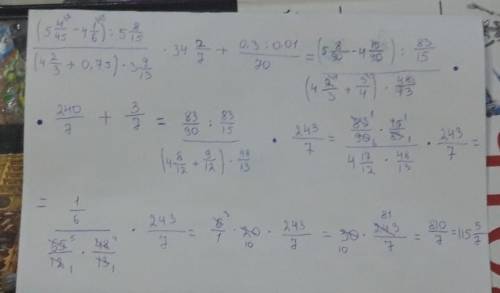 (5 4/45 - 4 1/6) : 5 8/15 / (4 2/3 + 0,75) · 3 9/13 · 34 2/7 + 0.3 : 0.01 / 70 = (5 8/90 - 4 15/90) : 83/15 / (4 2/3 + 3/4) · 48/13 ·
· 240/7 + 3/7 = 83/90 : 83/15 / (4 8/12 + 9/12) · 48/13 · 243/7 = 83/90 · 15/83 / 4 17/12 · 48/13 · 243/7 =
= 1/6 / 65/12 · 48/13 · 243/7 = · 20 · 243/7 = 30 · 243/7 = 810/7 = 115 5/7